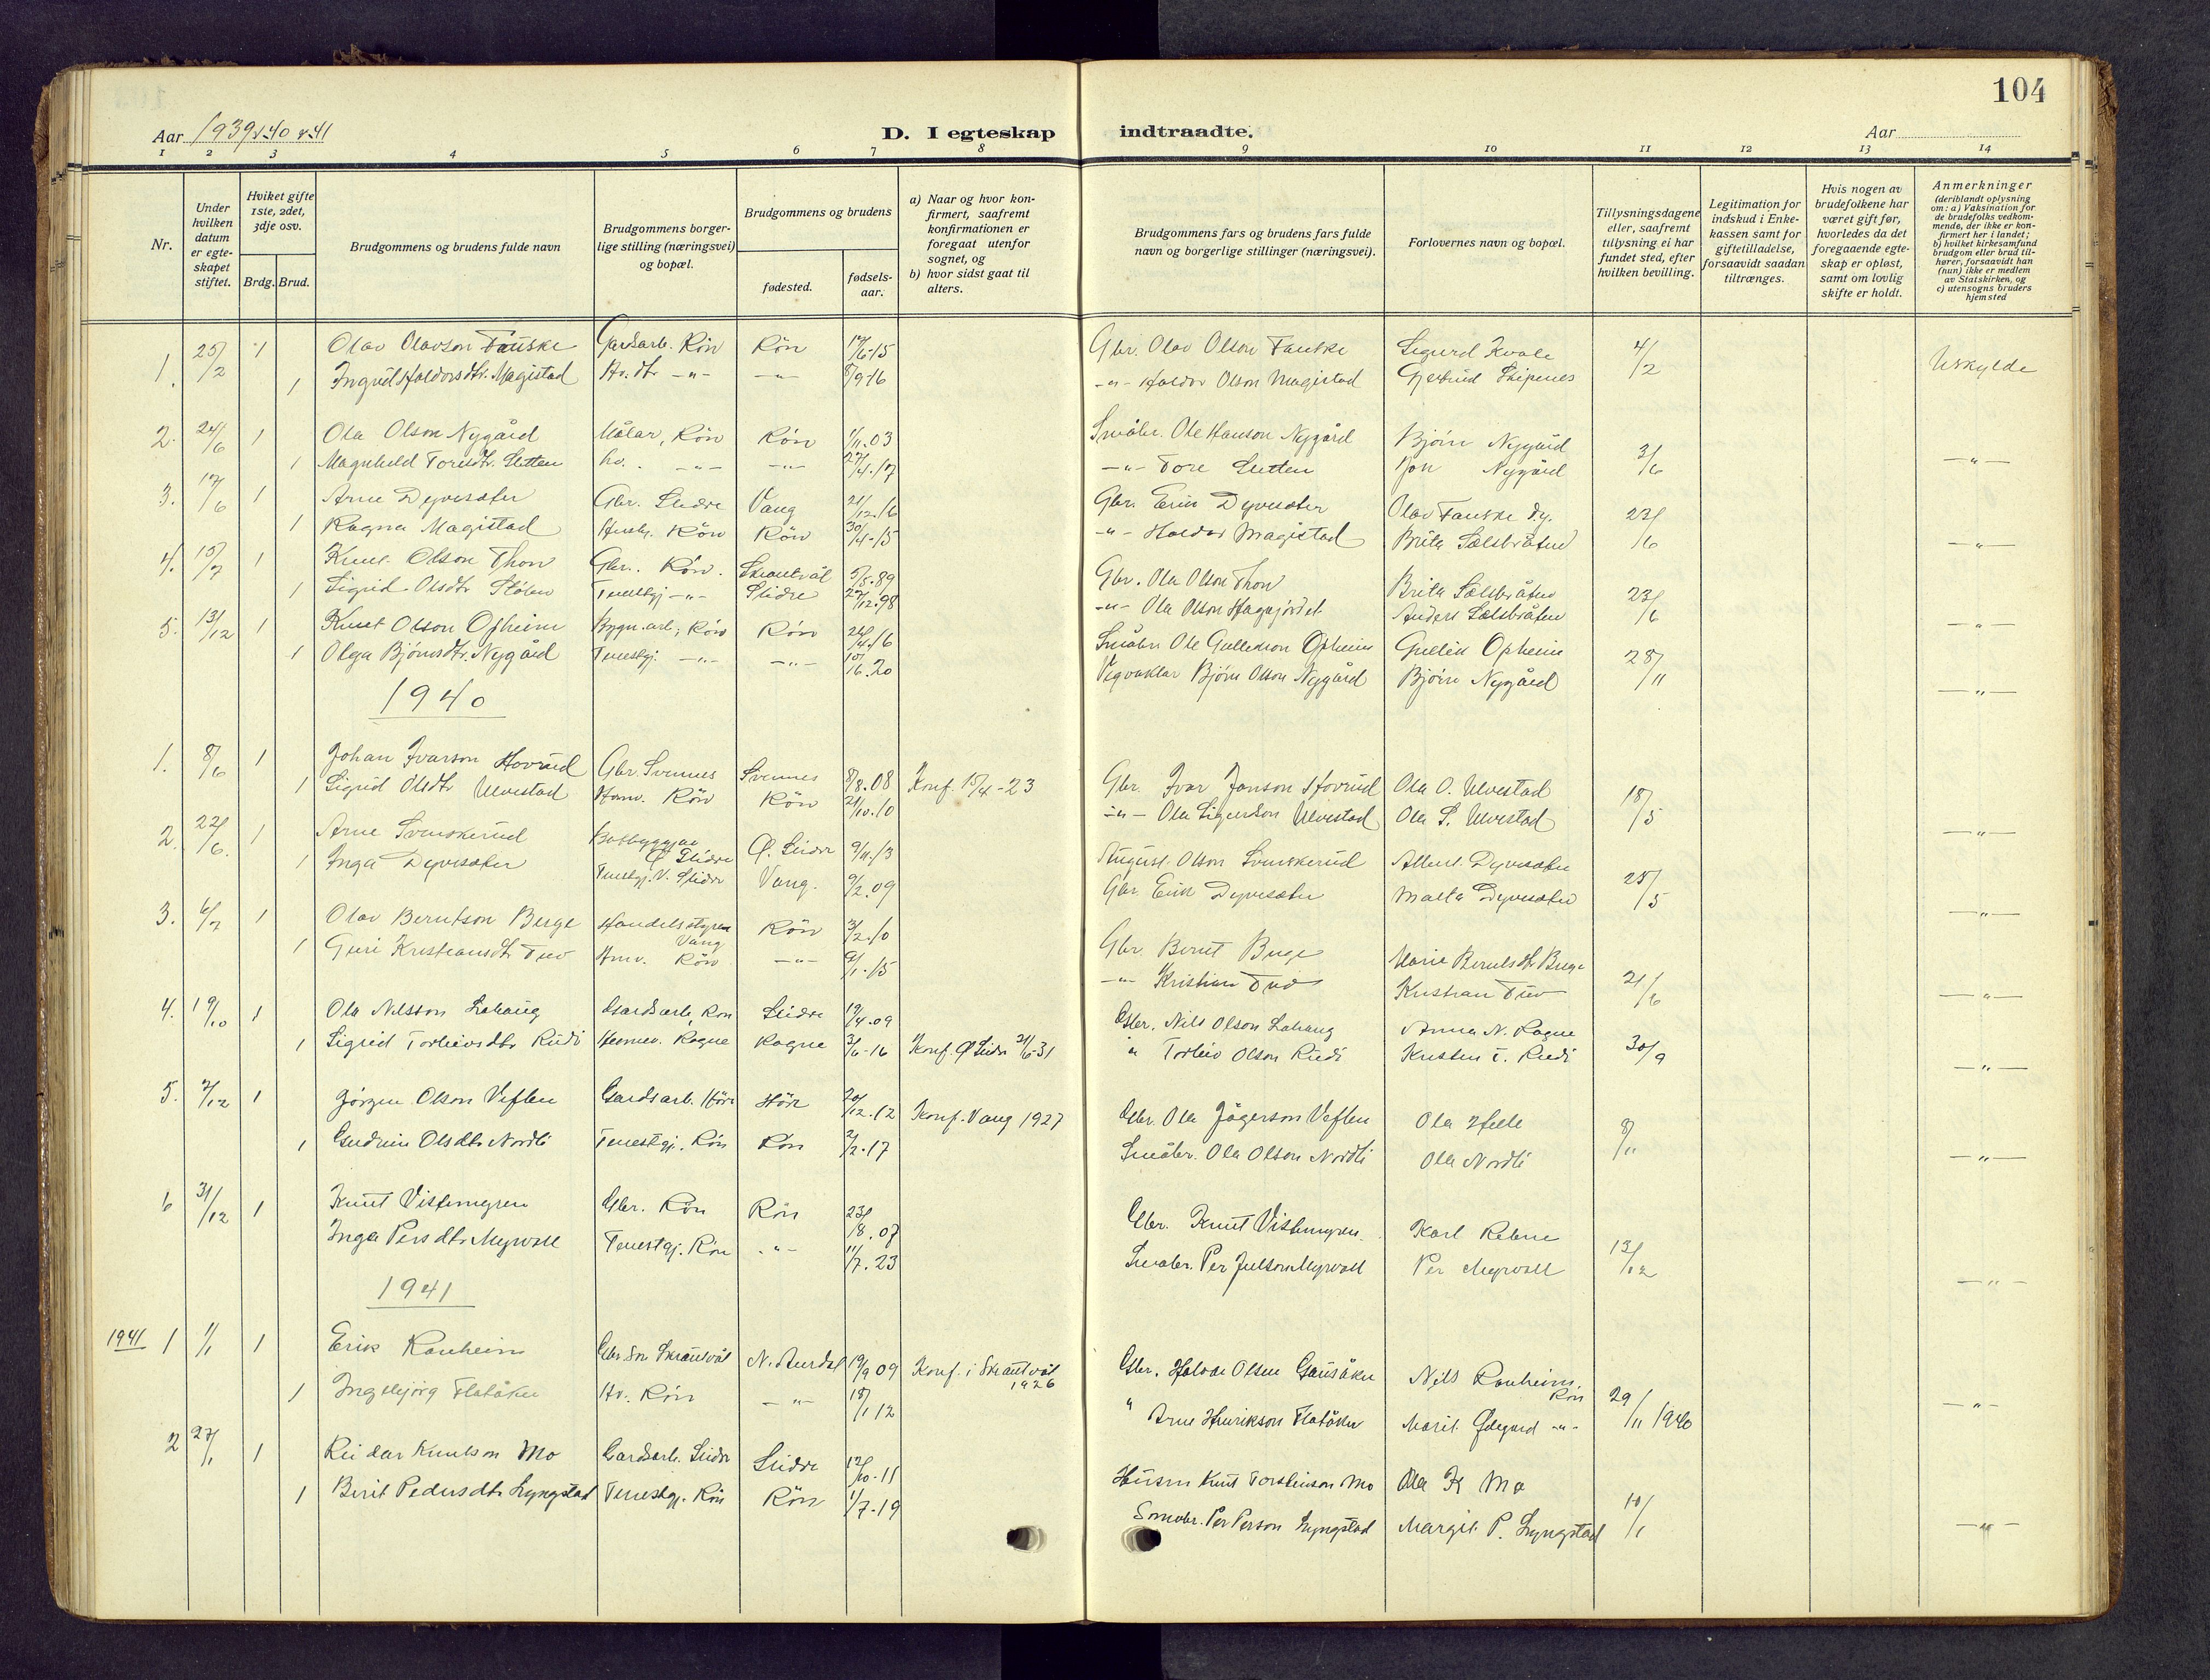 104
Aar 1939 & 40 & 41
D. I egteskap
indtraadte.
Aar
1 2 3 4 5 6 7 8 9 10 11 12 13 14
Nr.
Under hvilken datum er egte-skapet stiftet.
Hviket gifte 1ste, 2det, 3dje osv.
Brdg. Brud.
Brudgommens og brudens fulde navn
Brudgommens borger-lige stilling (næringsvei) og bopæl.
Brudgommens og brudens
fødested.
fødsels-aar.
a) Naar og hvor kon-firmert, saafremt konfirmationen er foregaat utenfor sognet, og
b) hvor sidst gaat til alters.
Brudgommens fars og brudens fars fulde navn og borgerlige stillinger (næringsvei).
Forlovernes navn og bopæl.
Tillysningsdagene eller, saafremt tillysning ei har fundet sted, efter hvilken bevilling.
Legitimation for indskud i Enke-kassen samt for giftetilladelse, forsaavidt saadan tiltrænges.
Hvis nogen av brudefolkene har været gift før, hvorledes da det foregaaende egte-skap er opløst, samt om lovlig skifte er holdt.
Anmerkninger (deriblandt oplysning om: a) Vaksination for de brudefolks vedkom-mende, der ikke er kon-firmert her i landet; b) hvilket kirkesamfund brudgom eller brud til-hører, forsaavidt han (hun) ikke er medlem av Statskirken, og c) utensogns bruders hjemsted
1. 25/2 1 Olav Olavson Fauske Gardsarb. Rön Rön 17/6-15 Gbr. Olav Olson Fauske Sigurd Kvale 4/2 Uskylde
1 Ingrid Haldorsdtr. Magistad Hv. dtr -"- -"- 8/9 16 -"- Haldor Olson Magistad Gjertrud Skipenes
2. 24/6 1 Ola Olson Nygård Målar, Rön Rön 1/11.03 Småbr. Ole Hanson Nygård Björn Nygård 3/6 -"-
1 Magnhild Toresdtr. Sletten hv. -"- -"- 27/4.17 -"- Tore Sletten Jon Nygård
3. 17/6 1 Arne Dyvesæter Gbr. Slidre Vang 21/12.16 Gbr. Erik Dyvesæter Olav Fauske d.y. 23/6 -"-
1 Ragna Magistad Husbr. Rön Rön 30/4-15 -"- Haldor Magistad Brita Sælsbråten
4. 15/7 1 Knut Olson Thon Gbr. Rön. Skrautvål 5/5.89 Gbr. Ola Olson Thon Brita Sælsbråten 23/6 -"-
1 Sigrid Olsdtr Tenestgj -"- Slidre 27/12.98 -"- Ola Olson Hagajordet Anders Sælsbråten
5. 13/12 1 Knut Olson Opheim Bygn.arb., Rön Rön 24/4.16 Småbr Ole Gulleikson Opheim Gullik Opheim 28/11 -"-
1 Olga Björnsdtr. Nygård Tenestgj. -"- -"- 16.20 Vegvaktar Björn Olson Nygård Björn Nygård
1940
1. 8/6 1 Johan Ivarson Hovrud Gbr. Svennes Svennes 8/8.08 Konf. 15/4-23 Gbr. Ivar Janson Hovrud Ola O. Ulvestad 18/5 -"-
1 Sigrid Olsdtr Ulvestad Rön Rön 21/10.10 -"- Ola Sigurdson Ulvestad Ola S. Ulvestad
2. 22/6. 1 Arne Svenskerud Båtbyggjar Ø. Slidre Ø. Slidre 9/11.13 August Olson Svenskerud Albert Dyvesæter 25/5 -"-
1 Inga Dyvesæter Tenestgj. V. Slidre Vang. 9/2.09 Gbr. Erik Dyvesæter Marta Dyvesæter
3. 6/7 1 Olav Berntson Berge Handelsstyrar Vang Rön 3/2.10 Gbr Bernt Berge Marie Berntsdtr Berge 21/6 -"-
1 Guri Kristiansdtr Tuv Rön -"- 9/1.15 -"- Kristian Tuv Kristian Tuv
4. 19/10 1 Ola Nilsson Lohaug Gardsarb, Rön Slidre 19/4.09 Gbr. Nils Olson Lohaug Anna N. Rogne 30/9 -"-
1 Sigrid Torleivsdtr Rudi Heimev. Rogne Rogne 3/6-16 Konf. Ø Slidr 21/6-31 " Torleiv Olson Rudi Kristen T. Rudi
5. 7/12 1 Jörgen Olson Veflen Gardsarb. Höre Höre 20/12.12 Konf. Vang 1927 Gbr. Ola Jögerson Veflen Ola Helle 8/11 -"-
1 Gudrun Olsdtr Nordli Tenestgj. Rön Rön 2/2.17 Småbr. Ola Olson Nordli Ola Nordli
6 31/12 1 Knut Vistemyren Gbr. Rön Rön 23/8.07 Gbr. Knut Vistemyren. Karl Rebne 13/12 -"-
Inga Persdtr Myrvoll Tenestgj. Rön -"- 11/7.23 Småbr. Per Julson Myrvoll Per Myrvoll
1941
1941 1 1/1 1 Erik Ranheim Gbr. Sön Skrautvål N. Aurdal 19/9 09 Konf. i Skrautvål 1926 Gbr. Halvor Olsen Gausåker Nils Ranheim. Rön 29/11 1940 -"-
1 Ingebjörg Flatåker Hv. Rön -"- 18/1 12 " Arne Henrikson Flatåker Marit Ødegard -"-
2 27/1 1 Reidar Knutson Mo Gardsarb. Slidr Slidre 12/10-11 Husm Knut Torsteinson Mo Ola K Mo 10/1 -"-
1 Berit Pedersdtr Lyngstad Tenestgj. Rön Rön 1/7-19 Småbr. Per Person Lyngstad Margit P. Lyngstad